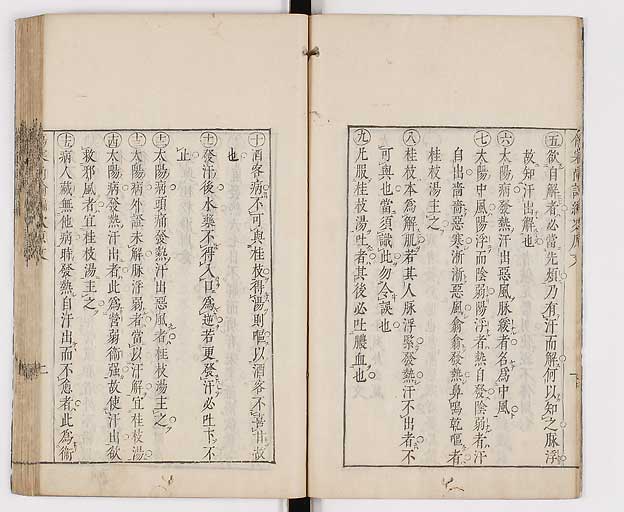 ㊄欲自解者必當先煩乃有汗而解何以知之脉浮
故知汗出解也
㊅太陽病發熱汗出惡風脉緩者名爲中風
㊆太陽中風陽浮而陰弱陽浮者熱自發陰弱者汗
自出嗇嗇惡寒淅淅惡風翕翕發熱鼻鳴乾嘔者
桂枝湯主之
㊇桂枝本為解肌若其人脉浮緊發熱汗不出者不
可與也當須識此勿令誤也
㊈凡服桂枝湯吐者其後必吐膿血也
㊉酒客病不可與桂枝得湯則嘔以酒客不喜甘故
也
⑪發汗後水藥不得入口為逆若更發汗必吐下不
止
⑫太陽病頭痛發熱汗出惡風者桂枝湯主之
⑬太陽病外證未解脉浮弱者當以汗解宜桂枝湯
⑭太陽病發熱汗出者此為營弱衞强故使汗出欲
救邪風者宜桂枝湯主之
⑮病人藏無他病時發熱自汗出而不愈者此為衞